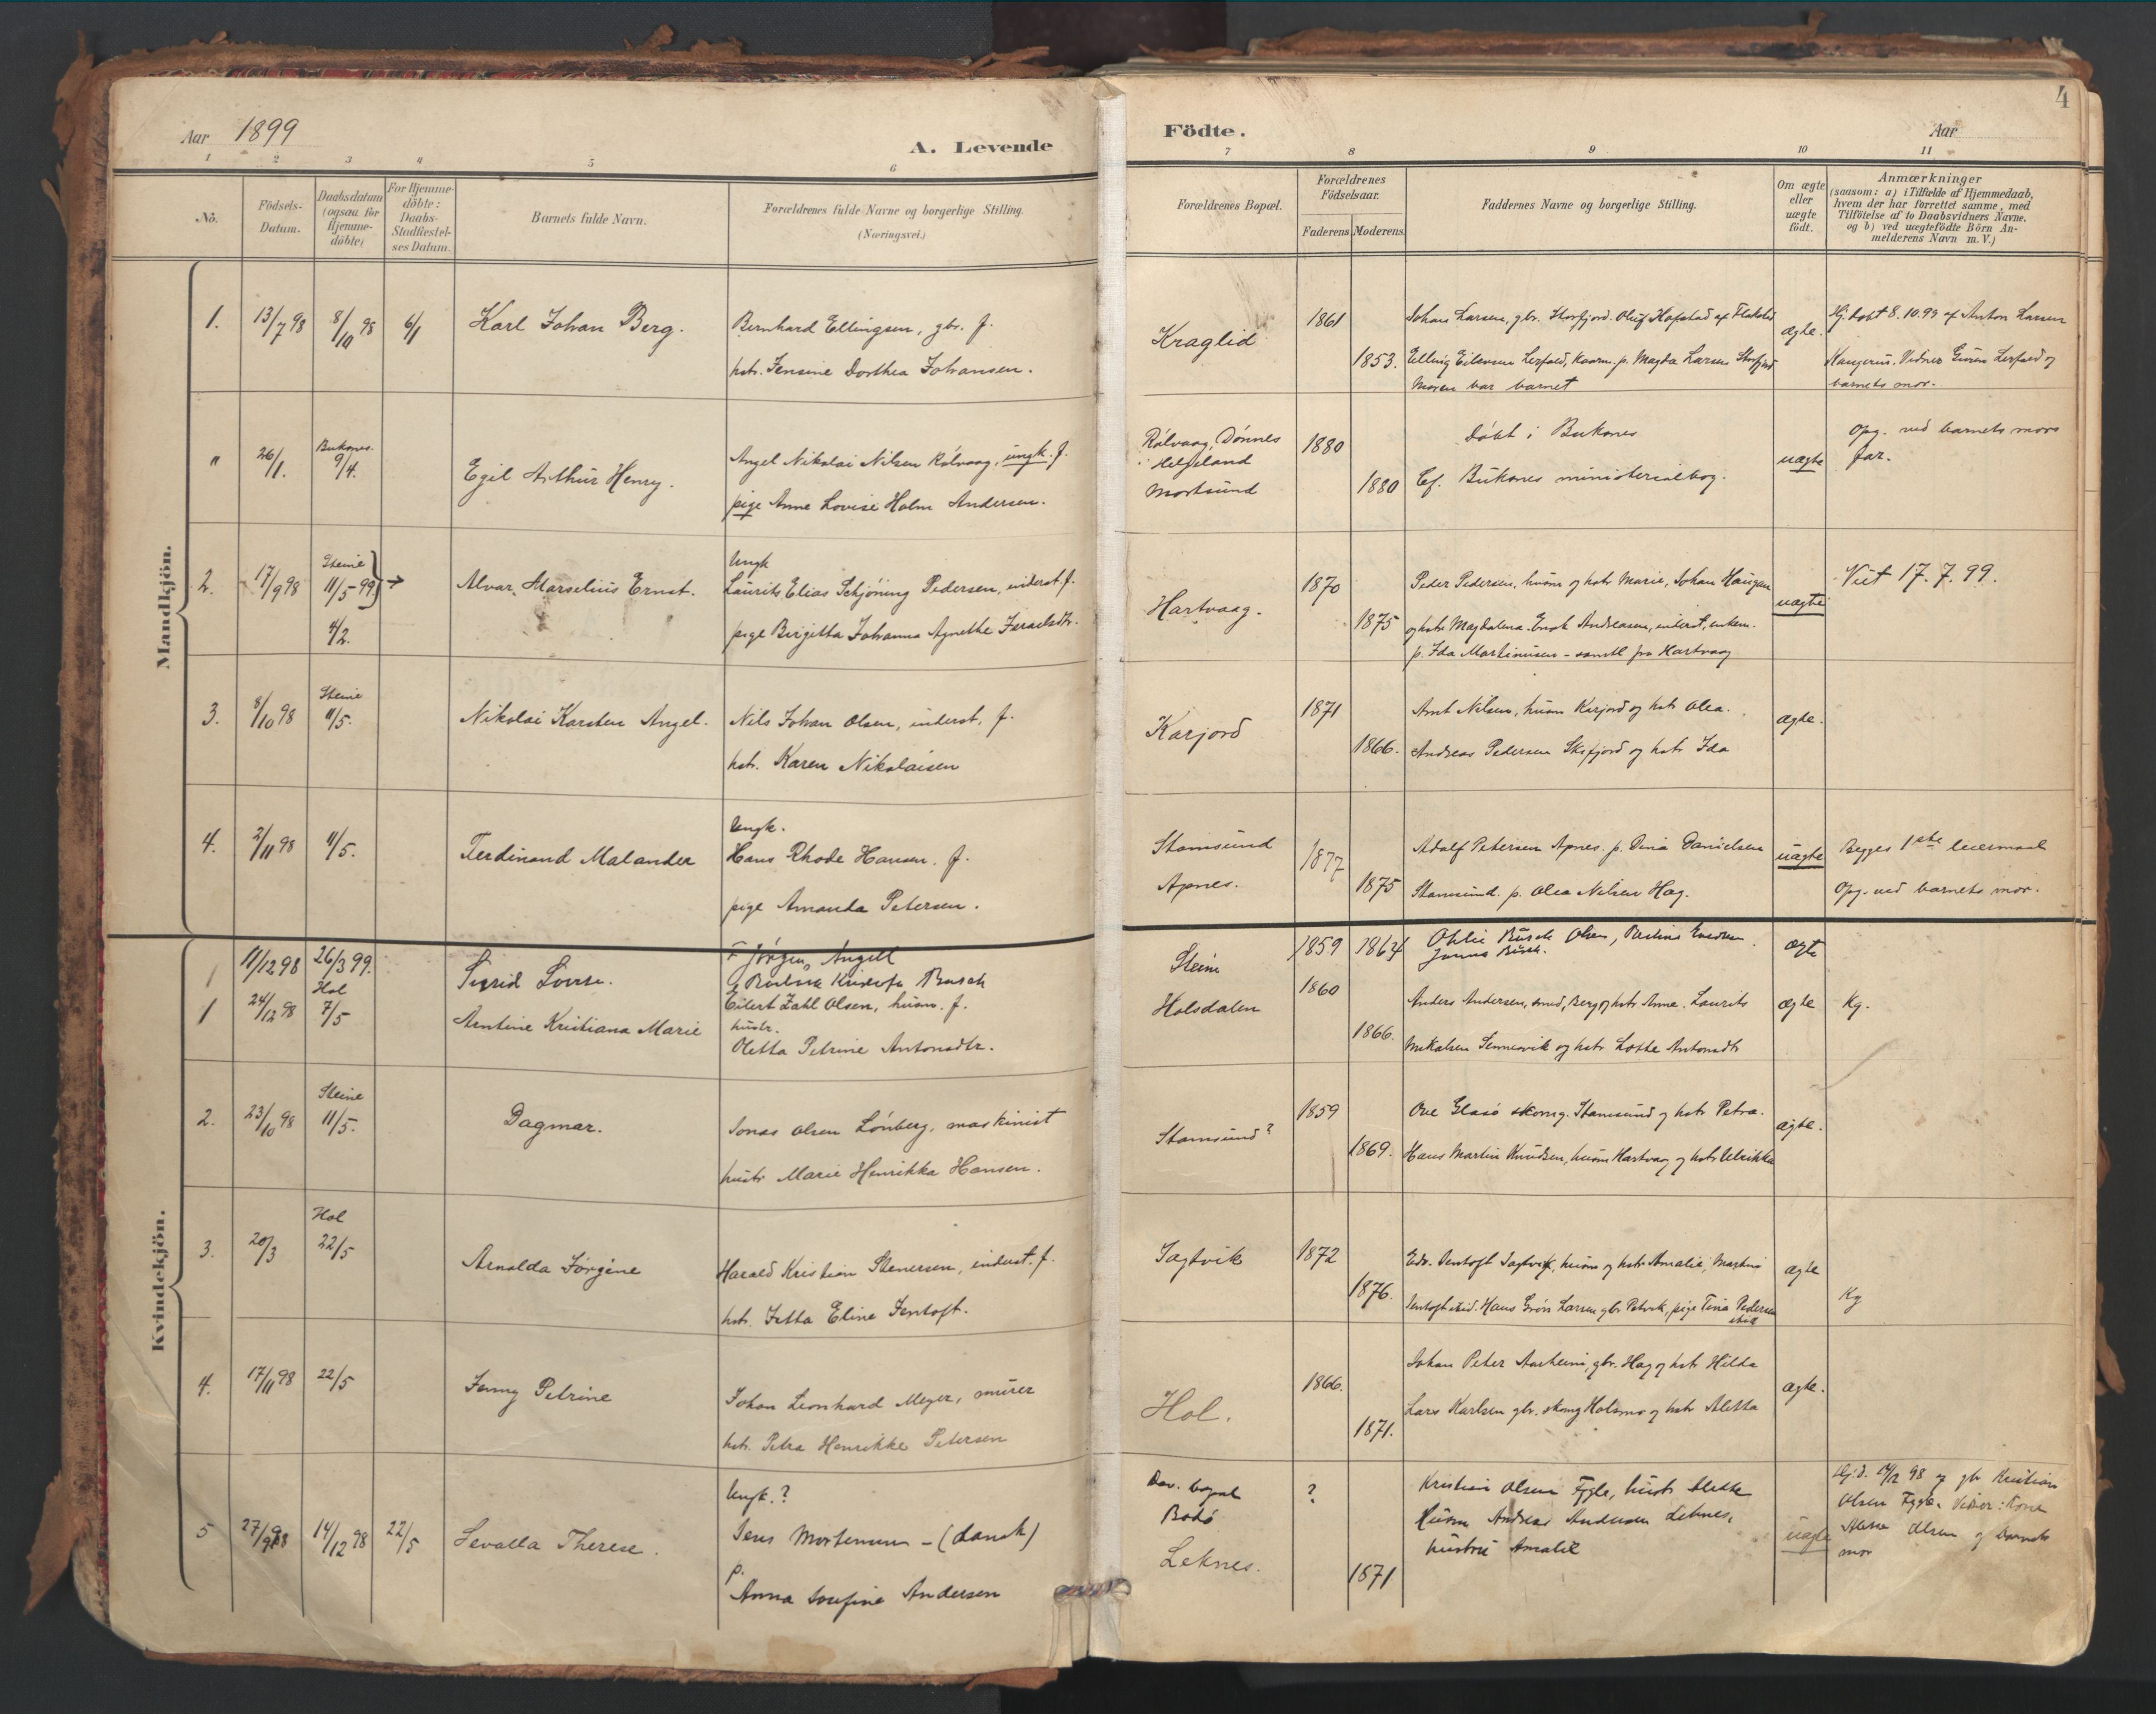 Aar 1899
A. Levende
Födte.
Aar
4
1 2 3 4 5 6 7 8 9 10 11
No.
Födsels-
Datum.
Daabsdatum
(ogsaa for
Hjemme-
döbte)
For Hjemme-
döbte:
Daabs-
Stadfæstel-
ses Datum.
Barnets fulde Navn.
Forældrenes fulde Navne og borgerlige Stilling.
(Næringsvei.)
Forældrenes Bopæl.
Forældrenes
Födselsaar.
Faderens
Moderens
Faddernes Navne og borgerlige Stilling.
Om ægte
eller
uægte
födt.
Anmærkninger
(saasom: a) i Tilfælde af Hjemmedaab,
hvem der har forrettet samme, med
Tilföielse af to Daabsvidners Navne.
og b) ved uægtefödte Börn An-
melderens Navn m.V.)
Mandkjön.
1. 13/7 98 8/10 98 6/1 Karl Johan Berg.
Bernhard Ellingsen, gbr. f.
hstr. Jensine Dorthea Johansen.
Kraglid 1861 1853.
Johan Larsen, gbr. Storfjord. Oluf Hopstad af Flakstad
Elling Eilevsen Lerfald, kaarm. p. Magda Larsen Storfjord
Moren bar barnet
ægte.
Hj. døbt 8.10.99 af Anton Larsen
Vidner Lerfald og
barnets mor.
" 26/1. Buksnes. 9/4. Egil Arthur Henry.
Angel Nikolai Nilsen Rølvaag, ungk. f.
pige Anne Lovise Holm Andersen.
Rølvaag, Dønnes
i Helgeland
Mortsund
1880 1880
Døbt i Buksnes
Cf. Buksnes ministerialbog.
uægte
Opg. ved barnets mors
far.
2. 17/9 98 Steine 11/5-99 4/2. Alvar Marselius Ernst.
Ungk
Laurits Elias Schjøning Pedersen, inderst f.
pige Birgitta Johanna Agnethe Israelsdtr.
Hartvaag. 1870 1875
Peder Pedersen, husm og hstr Marie, Johan Haugan
og hstr Magdalena. Enok Andreasen, inderst, enkem.
p. Ida Martinusen - samtl fra Hartvaag
uægte
Viet 17.7.99.
3. 8/10 98 Steine 11/5. Nikolai Karsten Angel.
Nils Johan Olsen, inderst, f.
hstr. Karen Nikolaisen
Karjord 1871 1866.
Arnt Nilsen, husm Karjord og hstr Olea.
Andreas Pedersen Skifjord og hstr Ida
ægte.
4. 2/11 98 11/5. Ferdinand Malander
Ungk.
Hans Rhode Hansen. f.
pige Amanda Petersen.
Stamsund
Apnes.
1877 1875
Adolf Petersen Apnes. p. Dina Danielsen
Stamsund. p. Olea Nilsen Hag.
uægte
Begges 1ste leiermaal
Opg. ved barnets mor.
Kvindekjön.
1 11/12 98 26/3 99. Sigrid Lovise.
Jørgen Angell
Busch
Steine 1859 1864
Busch Olsen,
ægte
1 24/12 98 Hol 7/5 Arntine Kristiana Marie
Eilert Zahl Olsen, husm. f.
hustr.
Oletta Petrine Antonsdtr.
Holsdalen 1860 1866.
Anders Andersen, smed, Berg og hstr Anne. Laurits
Mikalsen Sennesvik og hstr Lotte Antonsdtr
ægte Kg.
2. 23/10 98 Steine 11/5. Dagmar.
Jonas Olsen Lønberg, maskinist
hustr Marie Henrikka Hansen.
Stamsund? 1859 1869.
Ove Glasø skomg. Stamsund og hstr Petra.
Hans Martin Knudsen, husm Hartvaag og hstr Ulrikka
ægte.
3. 20/3 Hol 22/5 Arnolda Jørgine
Harald Kristian Stenersen, inderst. f.
hstr. Jetta Eline Jentoft.
Sagtvik 1872 1876.
Edv. Jentoft Sagtvik, husm og hstr Amalie, Martin
Jentoft ibid. Hans Grøn Larsen gbr Petvik, pige Tina Pedersen
ibid
ægte
Kg
4. 17/11 98 22/5 Jenny Petrine
Johan Leonhard Meyer, murer
hstr. Petra Henrikke Petersen
Hol. 1866. 1871.
Johan Peter Aasheim, gbr. Hag og hstr Hilda
Lars Karlsen gbr. skomg Holsmo og hstr Aletta
ægte.
5 27/9 98 14/12 98 22/5 Sevalla Therese.
Ungk.?
Jens Mortensen - (dansk)
p.
Anna Josefine Andersen
Dav. bopæl
Bodø
Leknes.
? 1871
Kristian Olsen Fygle, hustr Alette
Husm Andreas Andersen Leknes,
hustru Amalie
uægte
Hj.d. 14/12 98 af gbr Kristian
Olsen Fygle. Vidner: Kone
Alette Olsen og barnets
mor